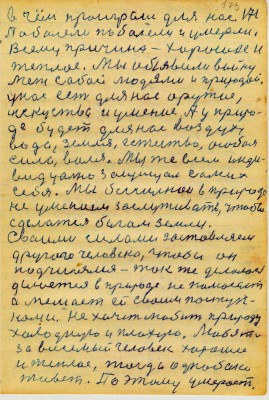 173
В чём проиграли для нас
Поболели поболели и умерли.
Всему причина – Хорошее и
теплое. Мы объявили войну
меж собой людями и природой.
у нас ест для нас оружие,
искуство и умение, А у приро-
де будет для нас воздух,
вода, земля, естество, особая
сила, воля. Мы же всем инди-
видуально защищал самих
себя. Мы бессильной в природе
не умением заслуживать, чтобы
сделатся богом земли.
Своими силами заставляем
другого человека, чтобы он
подчинялся – тож же
в природе не помогает
а мешает ей своим поступ-
ками. Не хочет любит природу
холодную и плохую. Любят
человек хорошое
и теплое, тогда
живет. Поэтому умерает.